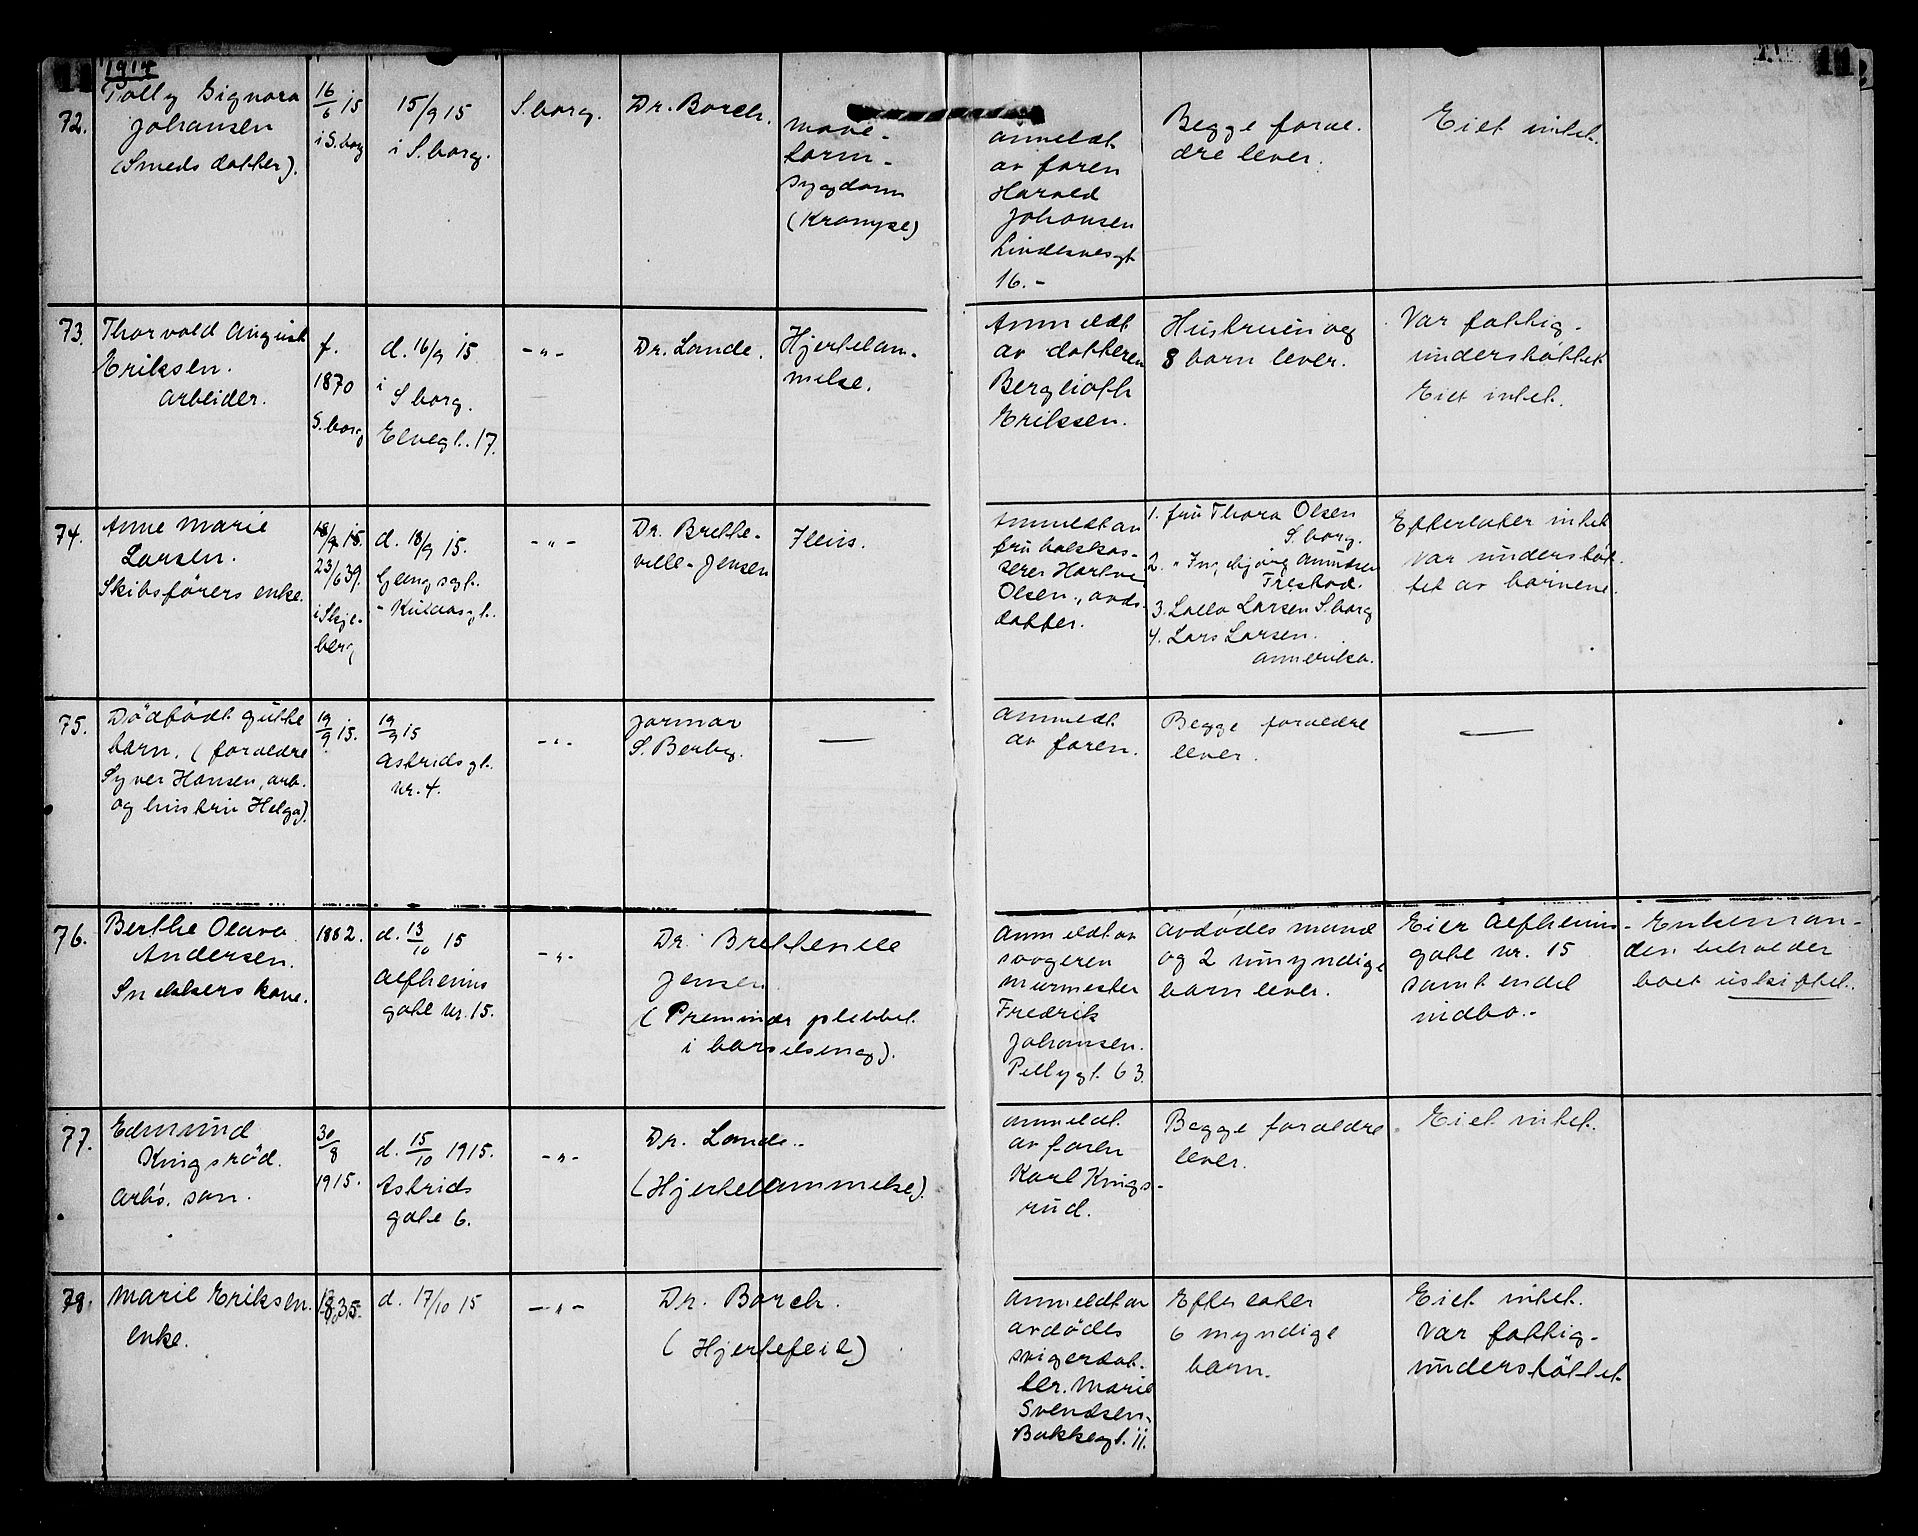 11
1914
11
72.
Polly Signora
Johansen
(Smeds datter).
16/6 15
i S.borg
15/9 15
i S.borg.
S.borg.
Dr. Borch.
mave-
tarm-
sygdom
(Krampe)
anmeldt
av faren
Harald
Johansen
Lindesnesgt
16.-
Begge foræl-
dre lever.
Eiet intet.
73.
Thorvald August
Eriksen.
arbeider.
f.
1870
S.borg
d. 16/9 15.
i
S borg.
Elvegt. 17.
-"-
Dr. Lande.
Hjertelam-
melse.
Anmeldt
av datteren
Berglioth
Eriksen.
Hustruen og
8 barn lever.
Var fattig-
understøttet
Eiet intet.
74.
Anne Marie
Larsen.
Skibsførers enke.
18/9 15.
23/6 39.
i Skje-
berg
d. 18/9 15.
Glengsgt.
- Kulaasgt.
-"-
Dr. Brette-
ville-Jensen
Ileus.
Anmeldt av
fru
Hartvig
Olsen., avds.
datter.
1. fru Thora Olsen
S.borg.
2. " Ingebjørg Amundsen
3. Lalla Larsen S.borg
4. Lars Larsen.
amerika.
Efterlater intet
var understøt-
tet av barnene.
75.
Dødfødt gutte
barn. (forældre
Syver Hansen, arb.
og hustru Helga).
19/9 15.
19/9 15
Astridsgt.
nr. 4.
-"-
Jormor
S. Berby.
—
anmeldt
av faren.
Begge forældre
lever.
—
76.
Berthe Olava
Andersen.
Snekkers kone.
1882.
d. 13/10 15
Alfheims
gate nr. 15.
-"-
Dr. Bretteville
Jensen.
i barselseng).
Anmeldt av
svogeren
murmester
Fredrik
Johansen.
Pellygt. 63.
avdødes mand
og 2 umyndige
barn lever.
Eier Alfheims-
gate nr. 15
samt endel
indbo.-
Enkeman-
den beholder
boet uskiftet.
77.
Edmund
Kingsrød.
arb's. søn.
30/8
1915.
d. 15/10 1915.
Astrids
gate 6.
-"-
Dr. Lande.
(Hjertelammelse).
anmeldt.
av faren
Karl Kings-
rud.
Begge forældre
lever.
Eiet intet.
78.
Marie Eriksen.
enke.
1835.
d. 17/10 15
-"-
Dr. Borch.
(Hjertefeil)
anmeldt av
avdødes
svigerdat-
ter. Marie
Svendsen,
Bakkegt. 11.
Efterlater
6 myndige
barn.
Eiet intet.
Var fattig-
understøttet